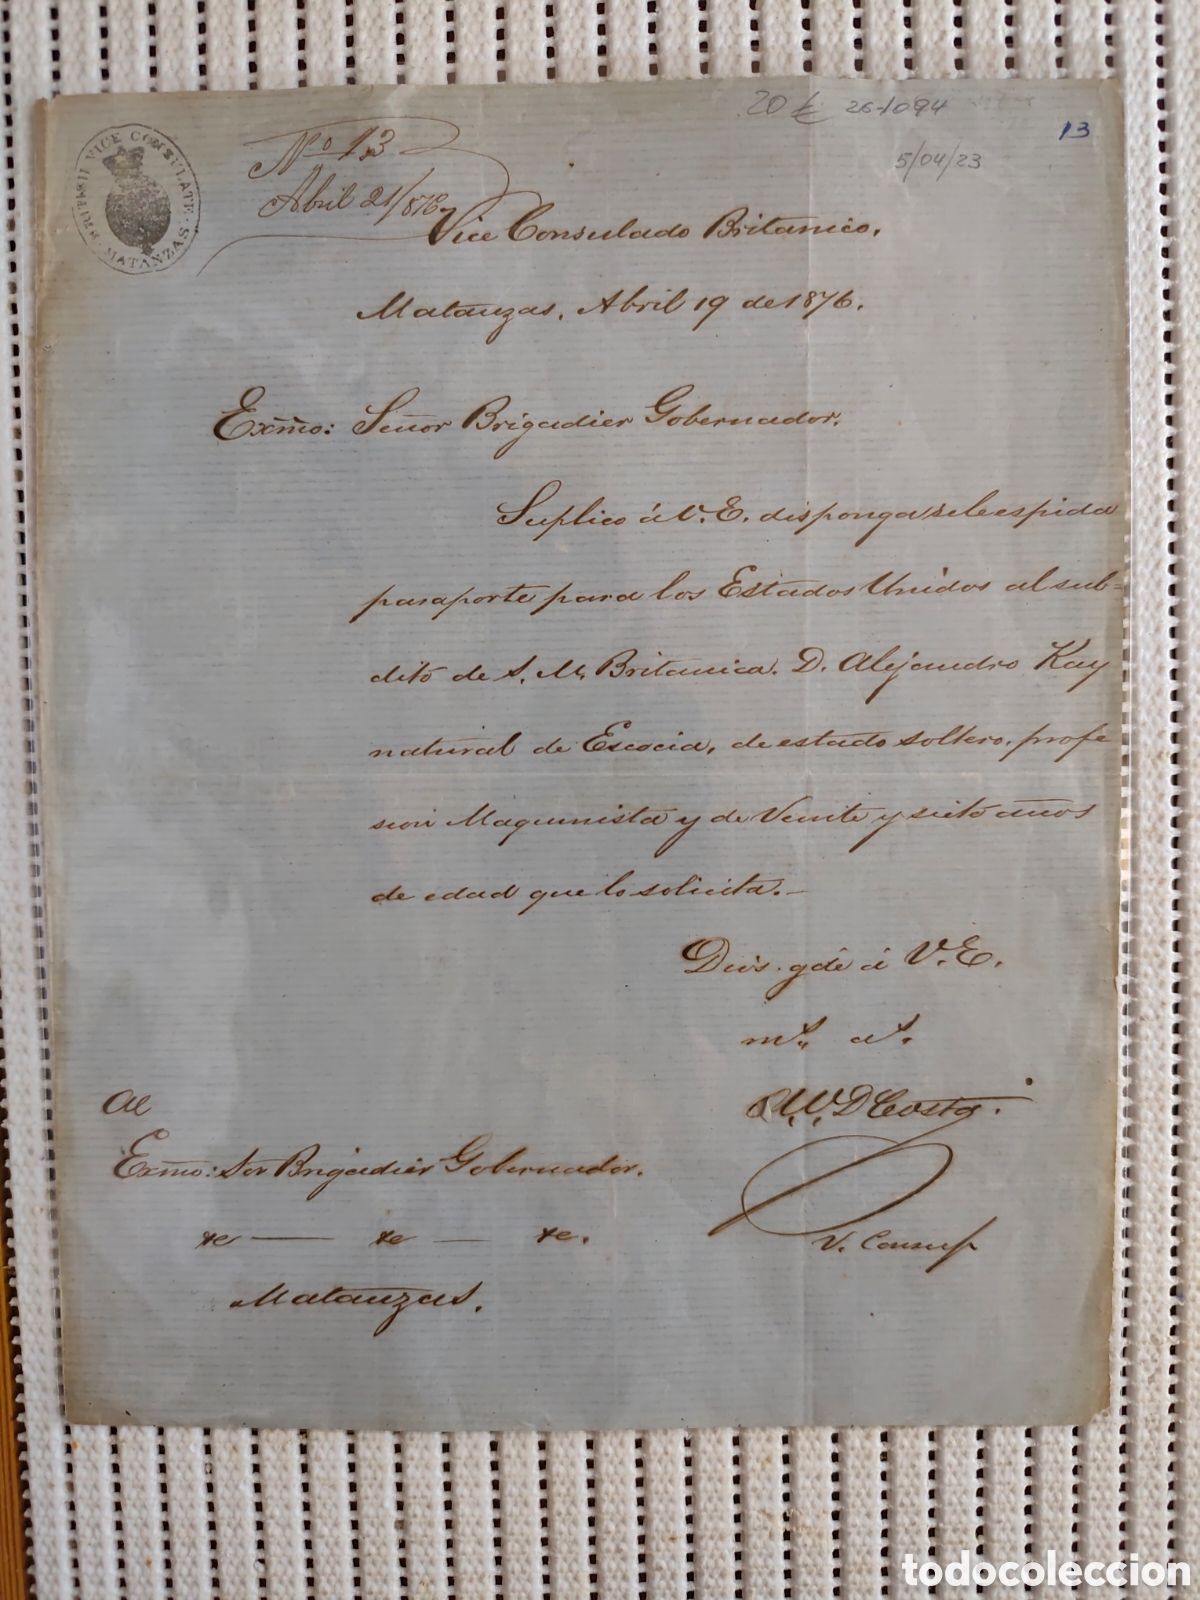 20 € 26-1094
13
5/04/23
BRITISH VICE CONSULATE MATANZAS
Nº 13
Abril 21/876
Vice Consulado Britanico.
Matanzas, Abril 19 de 1876.
Exmo: Señor Brigadier Gobernador.
Suplico á V. E. disponga se le espida
pasaporte para los Estados Unidos al sub=
dito de S. M. Britanica. D. Alejandro Kay
natural de Escocia, de estado soltero, profe
sion Maquinista y de Veinte y siete años
de edad que lo solicita.—
Dios gde á V. E.
ms. as.
D Costa.
V. Consul
Al
Exmo: Sor Brigadier Gobernador.
&c — &c — &c.
Matanzas.
todocoleccion